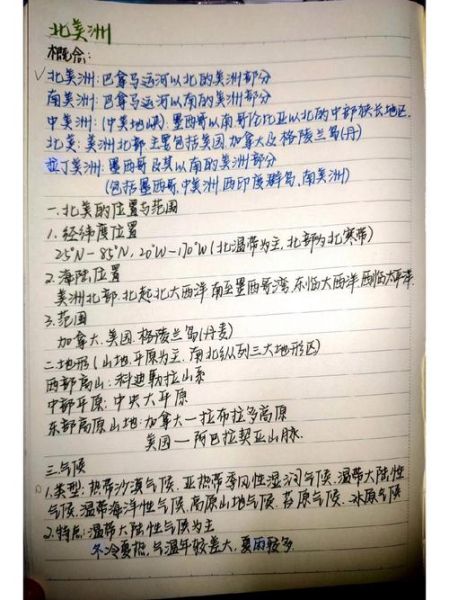 北美洲
概念:
✓北美洲:巴拿马运河以北的美洲部分
南美洲:巴拿马运河以南的美洲部分
中美洲:(中美地峡):墨西哥以南.哥伦比亚以北的中部狭长地区.
北美:美洲北部.主要包括美国.加拿大及格陵兰岛(丹)
拉丁美洲:墨西哥及其以南的美洲部分
(包括墨西哥.中美洲.西印度群岛.南美洲)
一.北美的位置与范围
1.经纬度位置
25°N-85°N,20°W-170°W(北温带为主,北部为北寒带)
2.海陆位置
美洲北部.北起北大西洋.南至墨西哥湾.东临大西洋.西临太平洋.
3.范围
加拿大.美国.格陵兰岛(丹麦)
二.地形(山地.平原为主.南北纵列三大地形区)
西部高山:科迪勒拉山系
中部平原:中央大平原
东部高原山地:加拿大—拉布拉多高原
美国—阿巴拉契亚山脉.
三.气候
1.类型:热带沙漠气候.亚热带季风性湿润气候.温带大陆性
气候.温带海洋性气候.高原山地气候.苔原气候.冰原气候
2.特点:温带大陆性气候为主
冬冷夏热.气温年较差大,夏雨较多.